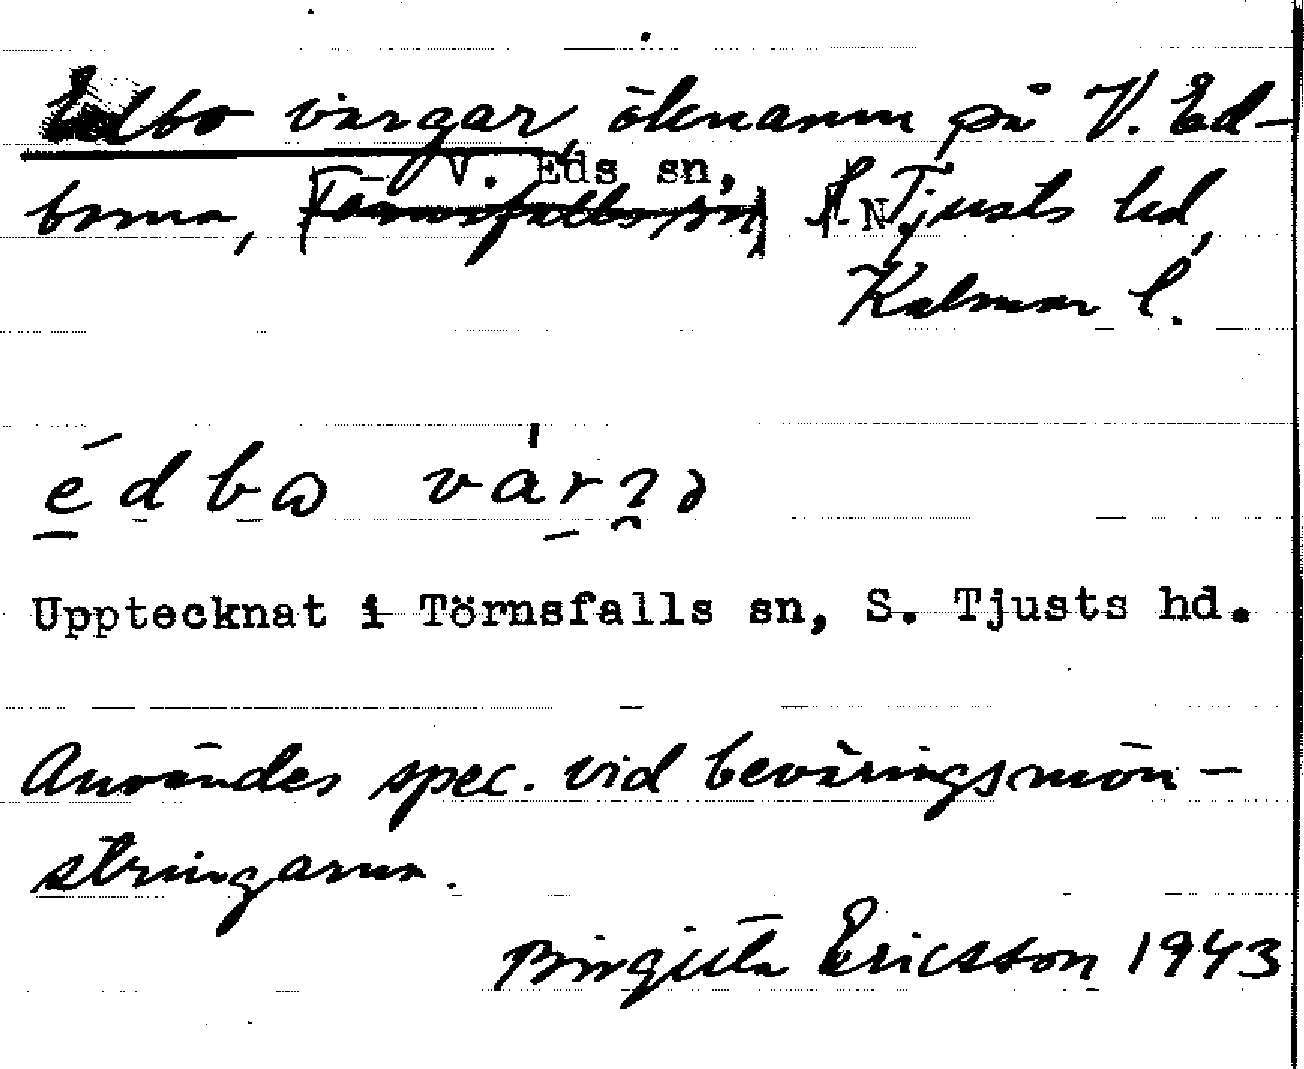 Edbo vargar, öknamn på V. Ed-
V. Eds sn,
borna, Törnsfalls sn, N. Tjusts hd,
Kalmar l.
édbɷ várɂə
Upptecknat i Törnsfalls sn, S. Tjusts hd.
Användes spec. vid beväringsmön-
stringarna.
Birgitta Ericsson 1943